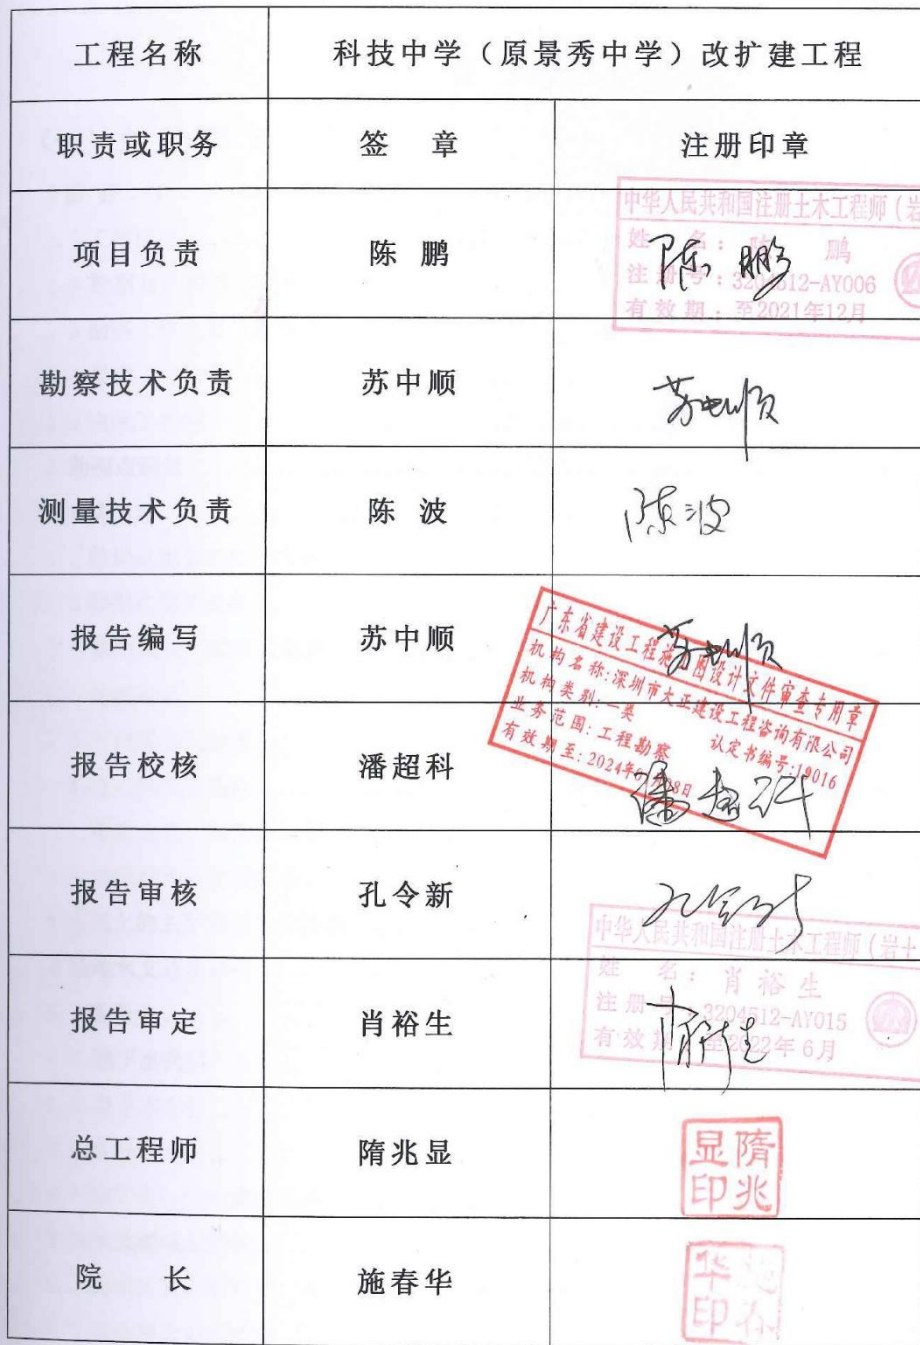 工程名称 科技中学（原景秀中学）改扩建工程
职责或职务 签 章 注册印章
中华人民共和国注册土木工程师（岩
项目负责 陈 鹏 陈鹏
姓 名： 陈 鹏
注册号：3204512-AY006
有效期：至2021年12月
勘察技术负责 苏中顺 苏中顺
测量技术负责 陈 波 陈波
报告编写 苏中顺 苏中顺
广东省建设工程施工图设计文件审查专用章
机构名称:深圳市大正建设工程咨询有限公司
机构类别:一类 认定书编号:19016
业务范围:工程勘察
有效期至:2024年6月28日
报告校核 潘超科 潘超科
报告审核 孔令新 孔令新
中华人民共和国注册土木工程师（岩土
姓 名：肖裕生
注册号：3204512-AY015
有效期：至2022年6月
报告审定 肖裕生 肖裕生
总工程师 隋兆显 隋兆显印
院 长 施春华 施春华印